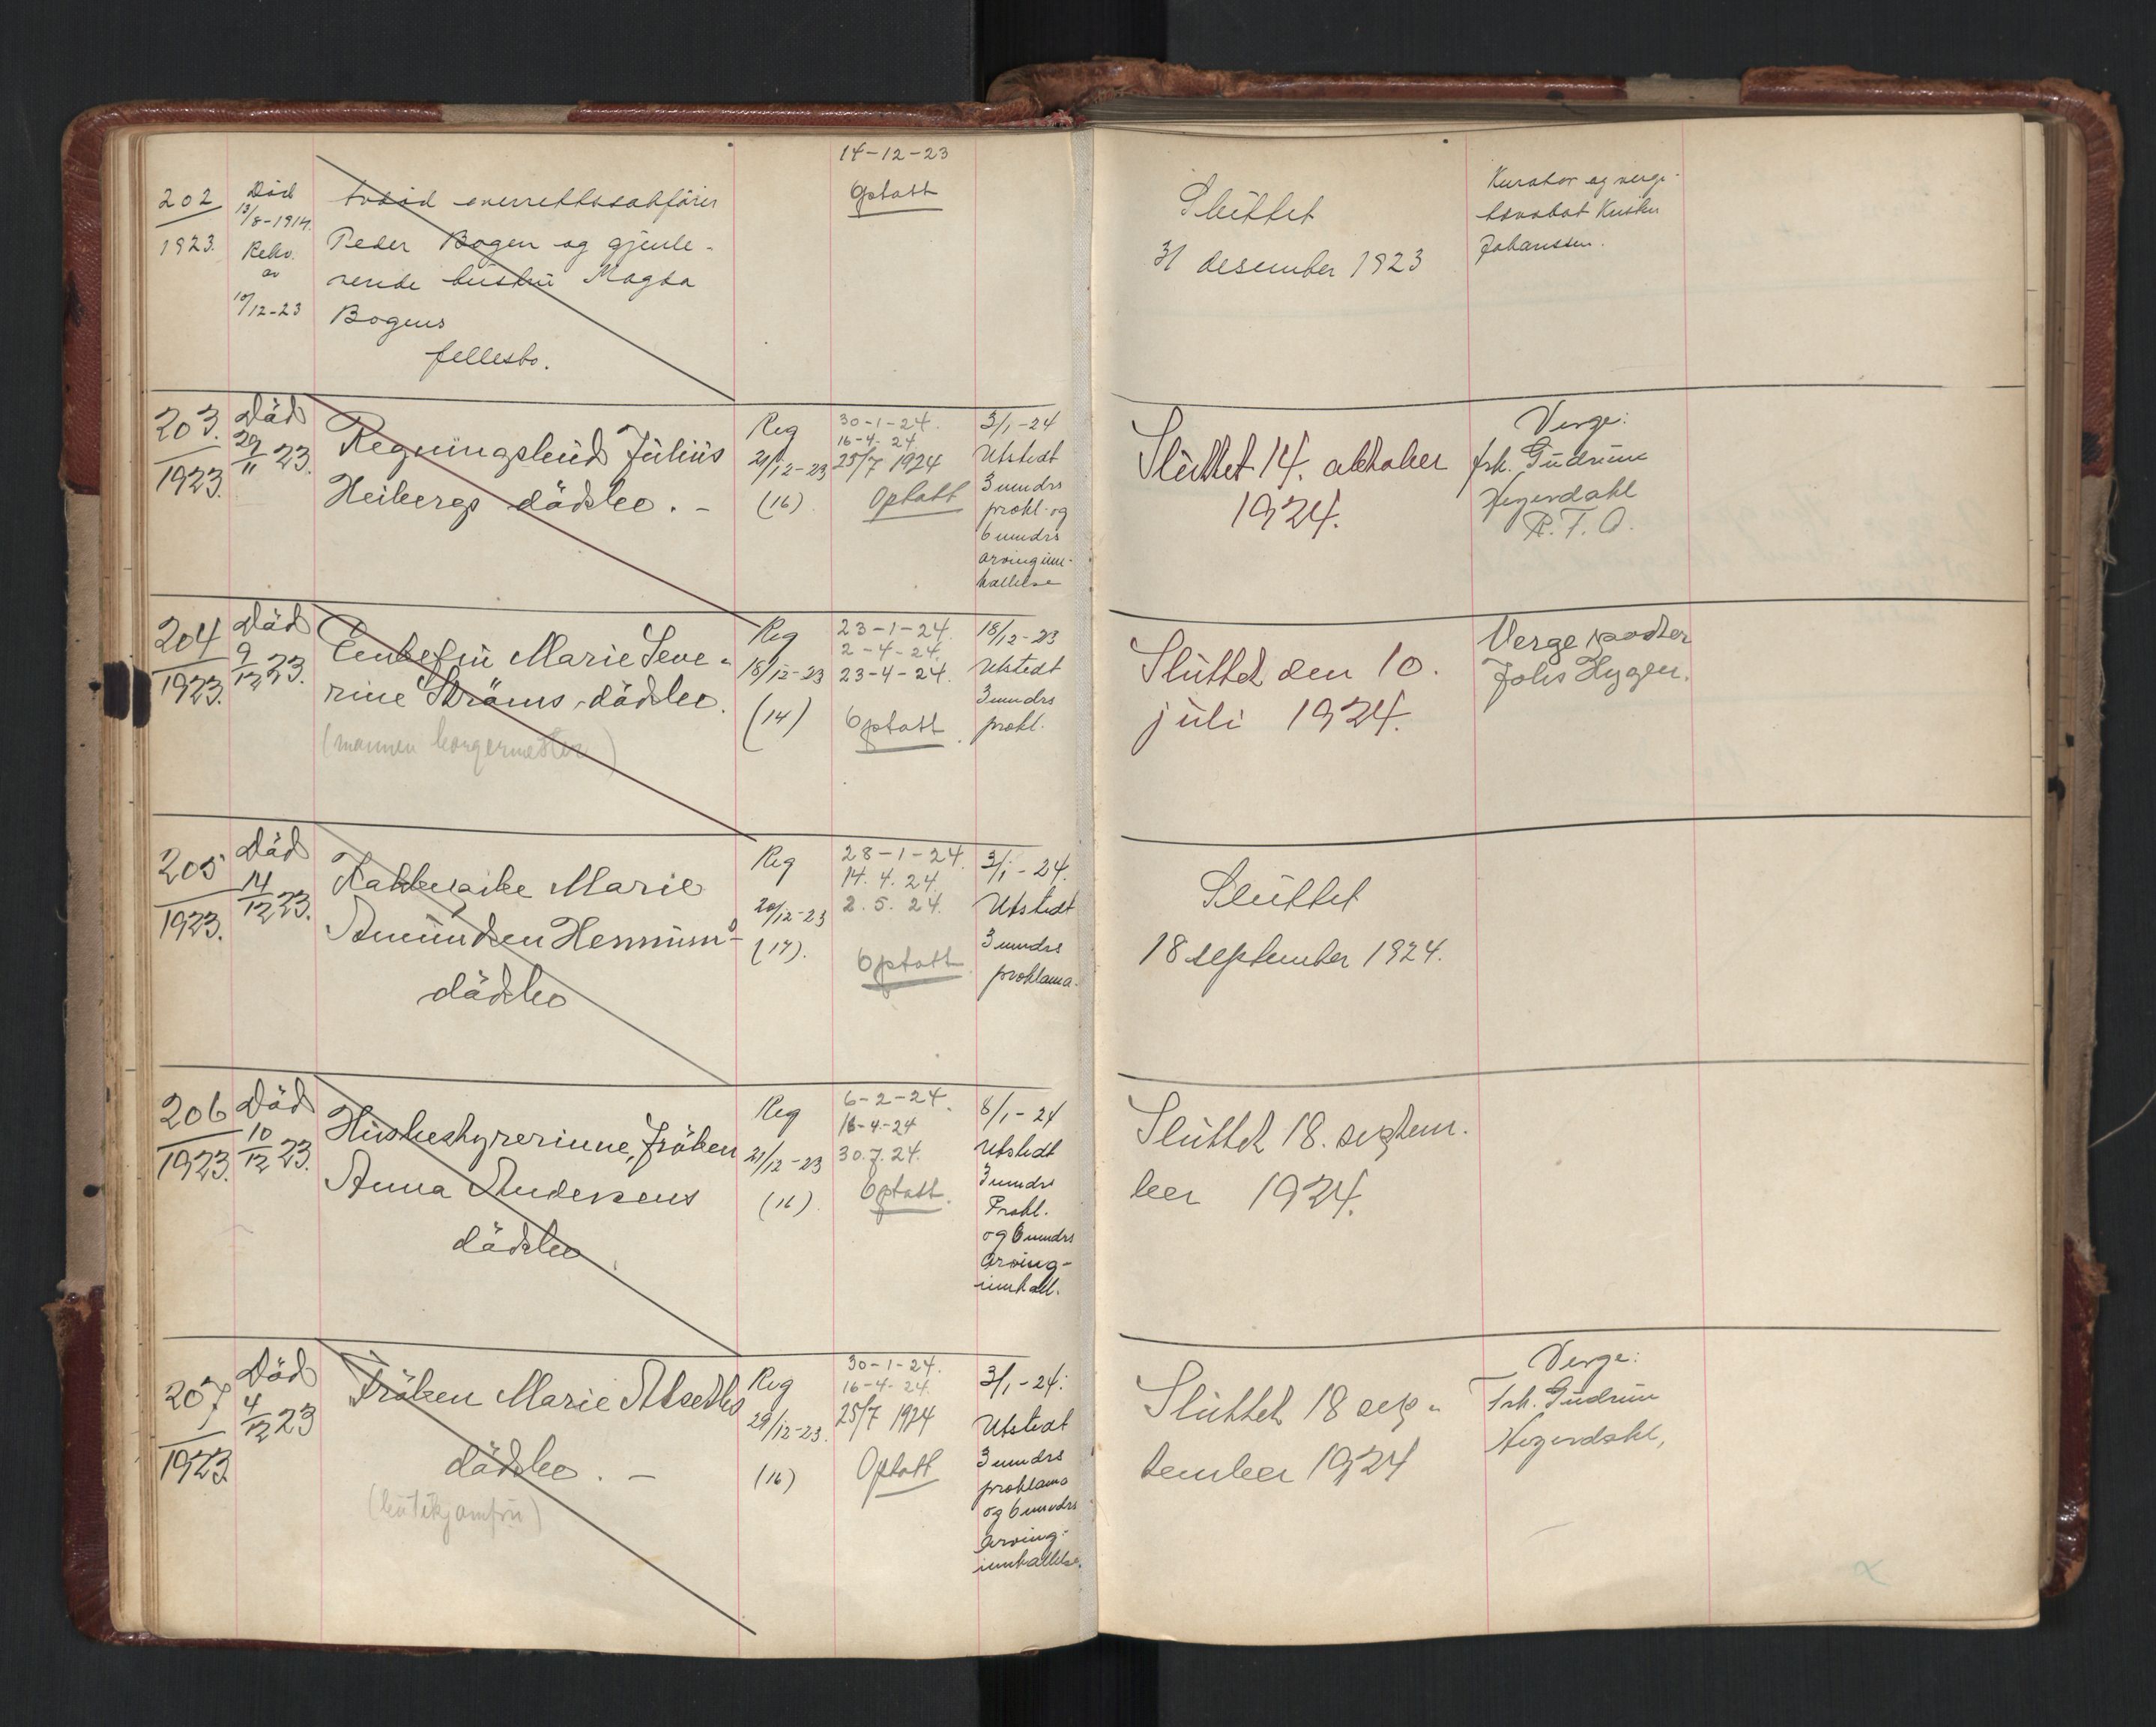 202
1923.
Död
13/8-1914.
Rekv.
av
10/12-23
avdöd overrettssakförer
Peder Bogen og gjenle-
vende hustru Magda
Bogens
fellesbo.
14-12-23
Optatt
Sluttet
31 desember 1923
Kurator og verge:
Johanssen.
203.
1923.
Död
29/11 23.
Regningsbud Julius
Heibergs dödsbo. -
Reg
21/12-23
(16).
30-1-24.
16-4-24
25/7 1924
Optatt
3/1-24
Utstedt
3 mndrs
prokl. og
6 mndrs
arvinginn-
kallelse
Sluttet 14. oktober
1924.
Verge:
frk. Gudrun
Hegerdahl
R. T. O.
204
1923.
Död
9/12 23.
Enkefru Marie Seve-
rine Ströms dödsbo.
(mannen borgermester)
Reg
18/12-23
(14)
23-1-24.
2-4-24.
23-4-24.
Optatt.
18/12-23
Utstedt
3 mndrs
prokl.
Sluttet den 10.
juli 1924.
Verge
Johs Hygen.
205
1923.
Död
14/12 23.
Marie
Amundsen Hennums
dödsbo
Reg
20/12-23
(17).
28-1-24.
14.4.24.
2.5.24.
Optatt.
3/1-24.
Utstedt
3 mndrs
proklama.
Sluttet
18 september 1924.
206
1923.
Död
10/12 23.
Husbestyrerinne, fröken
Anna Andersens
dödsbo
Reg
21/12-23
(16).
6-2-24.
16-4-24
30.7.24.
Optatt.
8/1-24
Utstedt
3 mndrs
Prokl.
og 6 mndrs
Arving-
innkall.
Sluttet 18. septem-
ber 1924.
207
1923
Död
4/12 23
Fröken Marie
dödsbo. -
(butikjomfru)
Reg
29/12-23.
(16)
30-1-24.
16-4-24.
25/7 1924
Optatt
3/1-24.
Utstedt
3 mndrs
proklama
og 6 mndrs
Arving-
innkallelse.
Sluttet 18 sep-
tember 1924
Verge:
Frk. Gudrun
Hegerdahl,